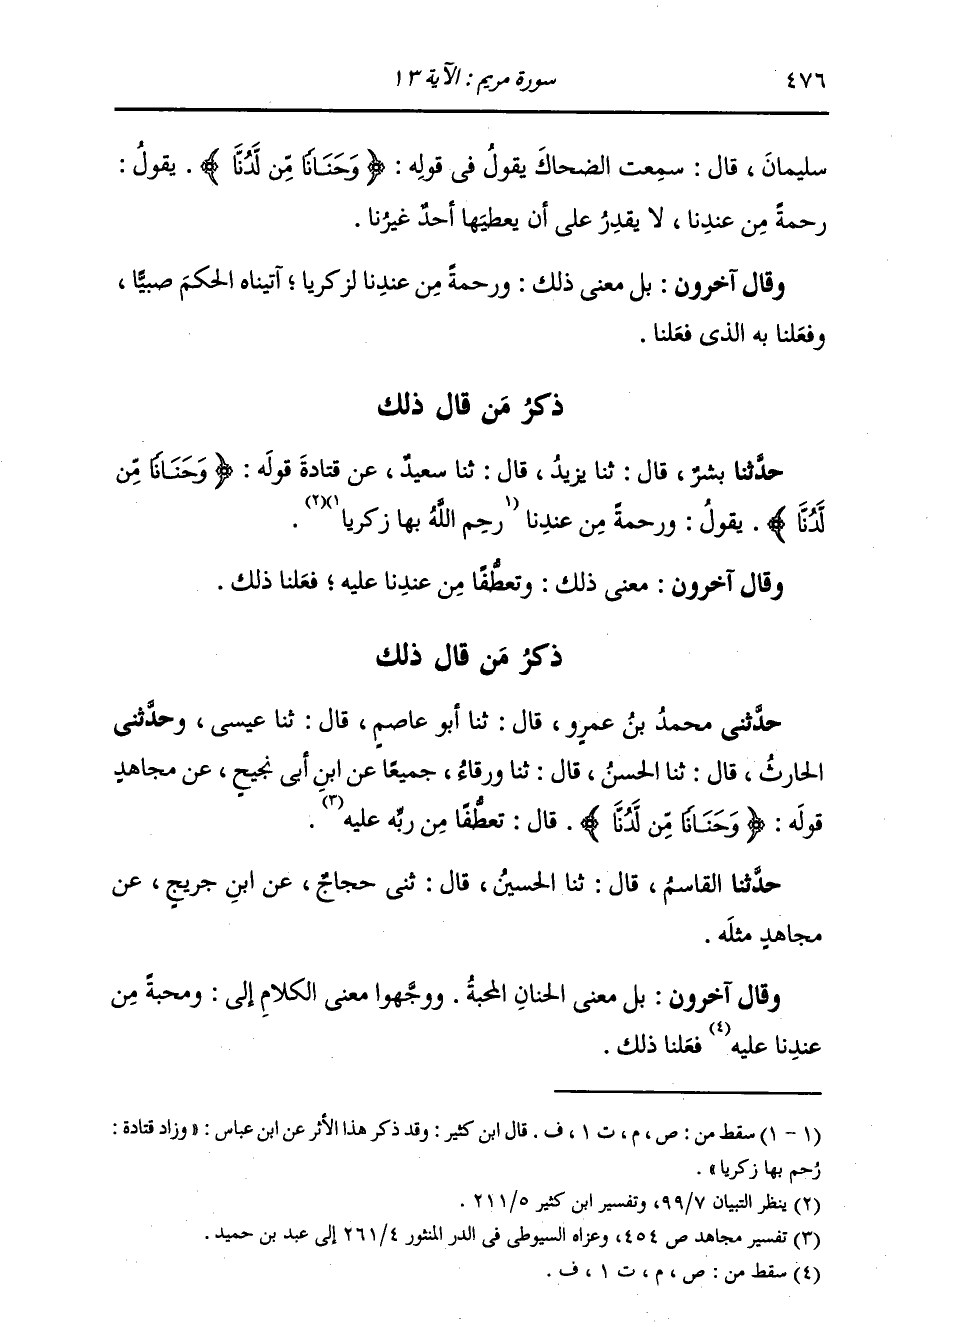 ٤٧٦ سورة مريم : الآية ١٣
سليمانَ ، قال : سمِعت الضحاكَ يقولُ فى قولِه : ﴿ وَحَنَانًا مِّن لَّدُنَّا ﴾ . يقولُ :
رحمةً مِن عندِنا ، لا يقدِرُ على أن يعطيَها أحدٌ غيرُنا .
وقال آخرون : بل معنى ذلك : ورحمةً مِن عندِنا لزكريا ؛ آتيناه الحكمَ صبيًّا ،
وفعَلنا به الذى فعَلنا .
ذكرُ مَن قال ذلك
حدَّثنا بشرٌ ، قال : ثنا يزيدُ ، قال : ثنا سعيدٌ ، عن قتادةَ قولَه : ﴿ وَحَنَانًا مِّن
لَّدُنَّا ﴾ . يقولُ : ورحمةً مِن عندِنا (١ رحِم اللَّهُ بها زكريا ١)(٢) .
وقال آخرون : معنى ذلك : وتعطُّفًا مِن عندِنا عليه ؛ فعَلنا ذلك .
ذكرُ مَن قال ذلك
حدَّثنى محمدُ بنُ عمرٍو ، قال : ثنا أبو عاصمٍ ، قال : ثنا عيسى ، وحدَّثنى
الحارثُ ، قال : ثنا الحسنُ ، قال : ثنا ورقاءُ ، جميعًا عن ابنِ أبى نجيحٍ ، عن مجاهدٍ
قولَه : ﴿ وَحَنَانًا مِّن لَّدُنَّا ﴾ . قال : تعطُّفًا مِن ربِّه عليه (٣) .
حدَّثنا القاسمُ ، قال : ثنا الحسينُ ، قال : ثنى حجاجٌ ، عن ابنِ جريجٍ ، عن
مجاهدٍ مثلَه .
وقال آخرون : بل معنى الحنانِ المحبةُ . ووجَّهوا معنى الكلامِ إلى : ومحبةً مِن
عندِنا عليه (٤) فعَلنا ذلك .
(١ - ١) سقط من : ص ، م ، ت ١ ، ف . قال ابن كثير : وقد ذكر هذا الأثر عن ابن عباس : « وزاد قتادة :
رُحم بها زكريا » .
(٢) ينظر التبيان ٧/ ٩٩، وتفسير ابن كثير ٥/ ٢١١ .
(٣) تفسير مجاهد ص ٤٥٤، وعزاه السيوطى فى الدر المنثور ٤/ ٢٦١ إلى عبد بن حميد .
(٤) سقط من : ص ، م ، ت ١ ، ف .